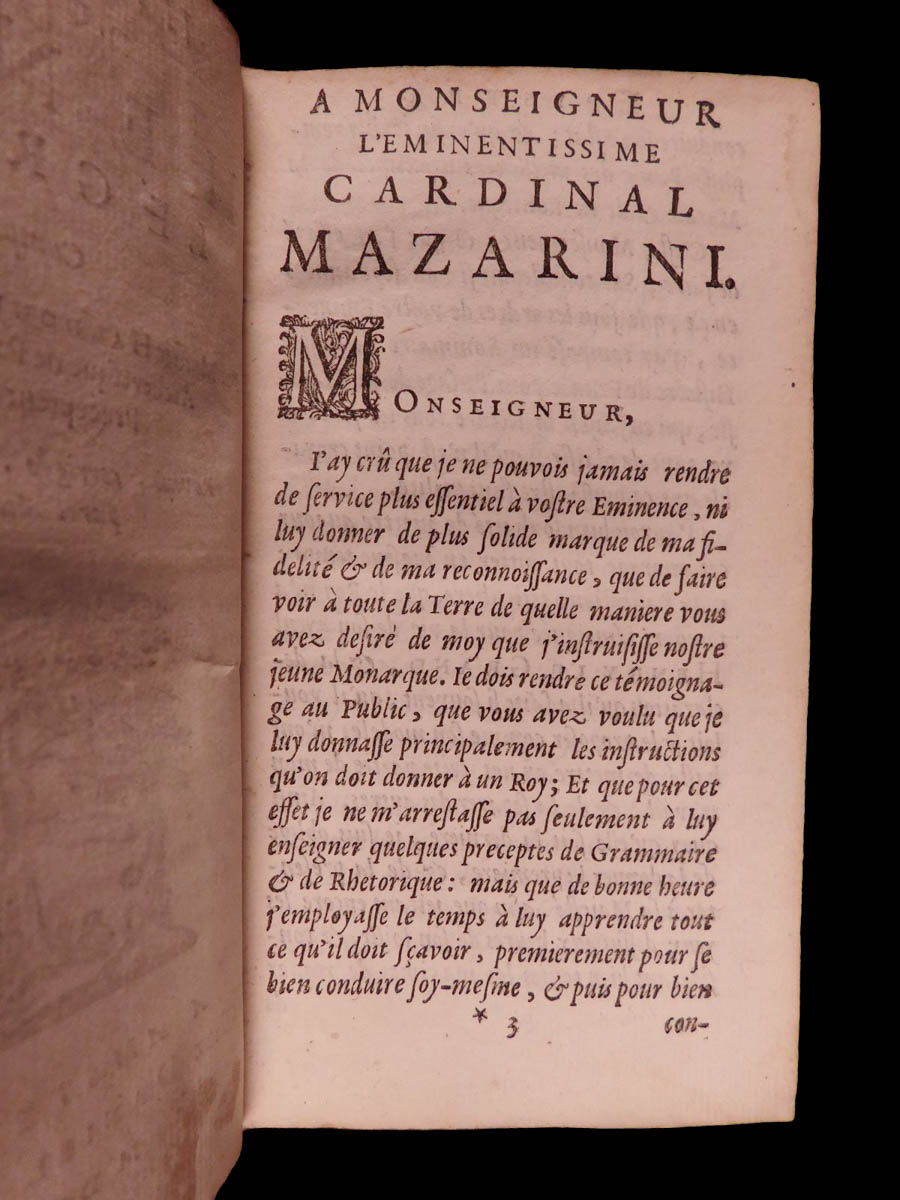 A MONSEIGNEUR
L'EMINENTISSIME
CARDINAL
MAZARINI.
MONSEIGNEUR,
I'ay crû que je ne pouvois jamais rendre
de ſervice plus eſſentiel à voſtre Eminence, ni
luy donner de plus ſolide marque de ma fi-
delité & de ma reconnoiſſance, que de faire
voir à toute la Terre de quelle maniere vous
avez deſiré de moy que j'inſtruiſiſſe noſtre
jeune Monarque. Ie dois rendre ce témoigna-
ge au Public, que vous avez voulu que je
luy donnaſſe principalement les inſtructions
qu'on doit donner à un Roy; Et que pour cet
effet je ne m'arreſtaſſe pas ſeulement à luy
enſeigner quelques preceptes de Grammaire
& de Rhetorique: mais que de bonne heure
j'employaſſe le temps à luy apprendre tout
ce qu'il doit ſçavoir, premierement pour ſe
bien conduire ſoy-meſme, & puis pour bien
* 3 con-